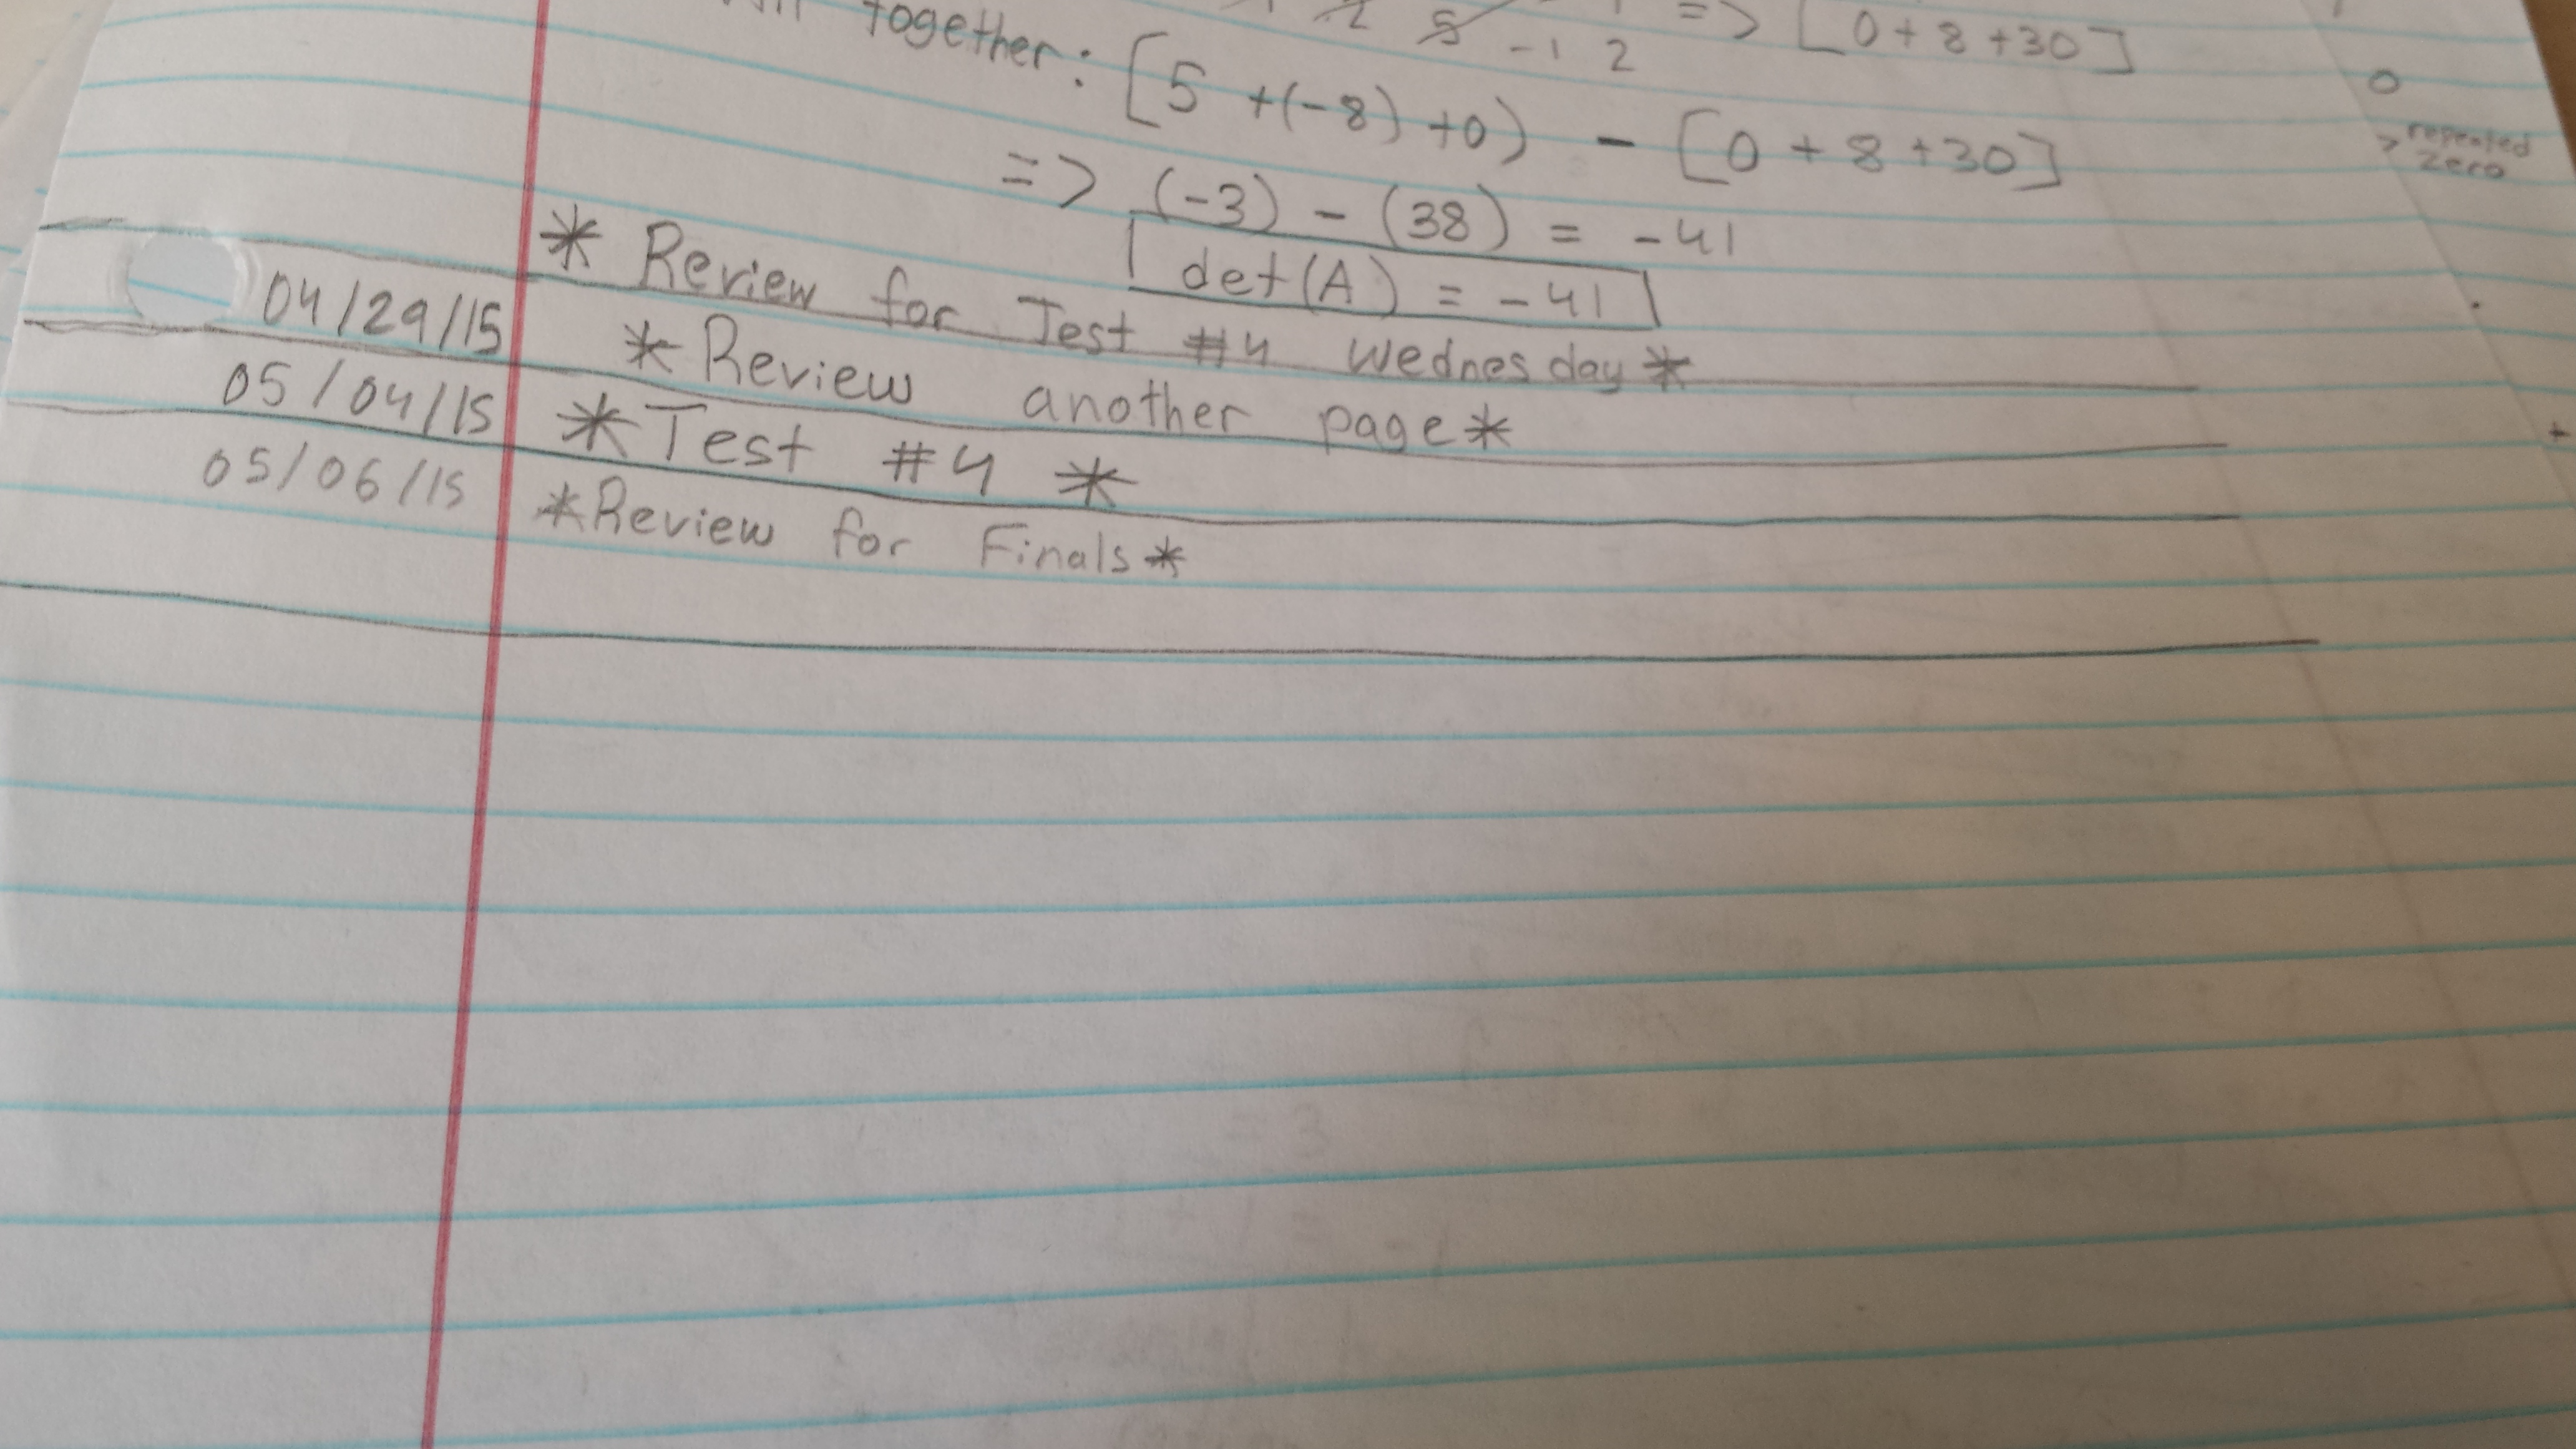 => [0+8+30]
2 5 -1 2
together: [5 +(-8) +0) - [0 + 8 +30]
=> (-3) - (38) = -41
det(A) = -41
* Review for Test #4 Wednesday *
04/29/15 * Review another page *
05/04/15 * Test #4 *
05/06/15 * Review for Finals *
0
> repeated
zero
+